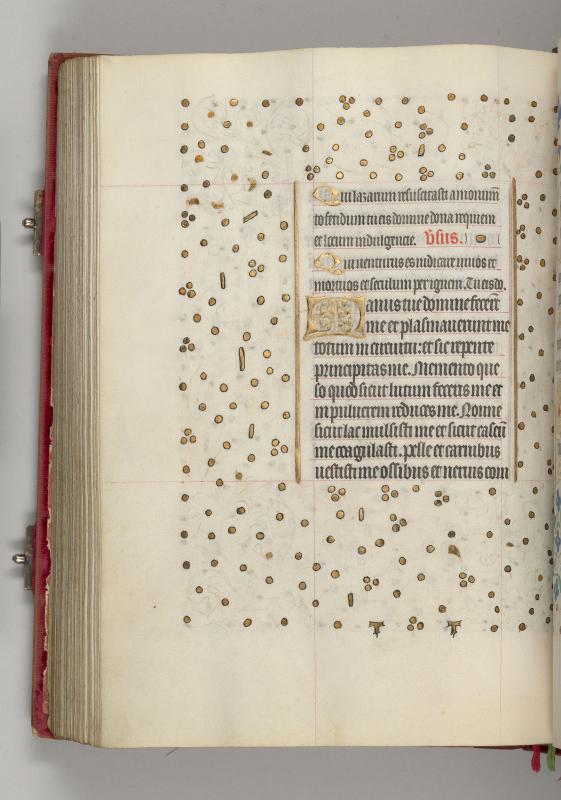 Qui lazarum resuscitasti a monum̄
to fetidum tu eis domine dona requiem
et locum indulgencie. v̄sus.
Qui uenturus es iudicare uiuos et
mortuos et seculum per ignem. Tu eis do.
Manus tue domine fecerūt
me et plasmauerunt me
totum in circuitu: et sic repente
precipitas me. Memento que
so quod sicut lutum feceris me et
in puluerem reduces me. Nonne
sicut lac mulsisti me et sicut caseū
me coagulasti. pelle et carnibus
uestisti me ossibus et neruis com